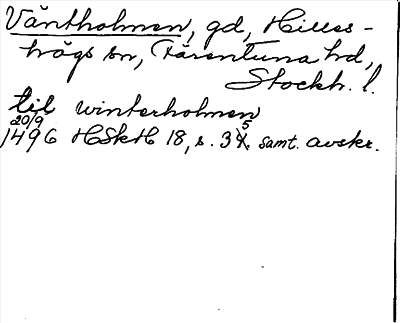 Väntholmen, gd, Hilles-
högs sn, Färentuna hd,
Stockh. l.
til winterholmen
20/9
1496 HSkH 18, s. 35 samt. avskr.